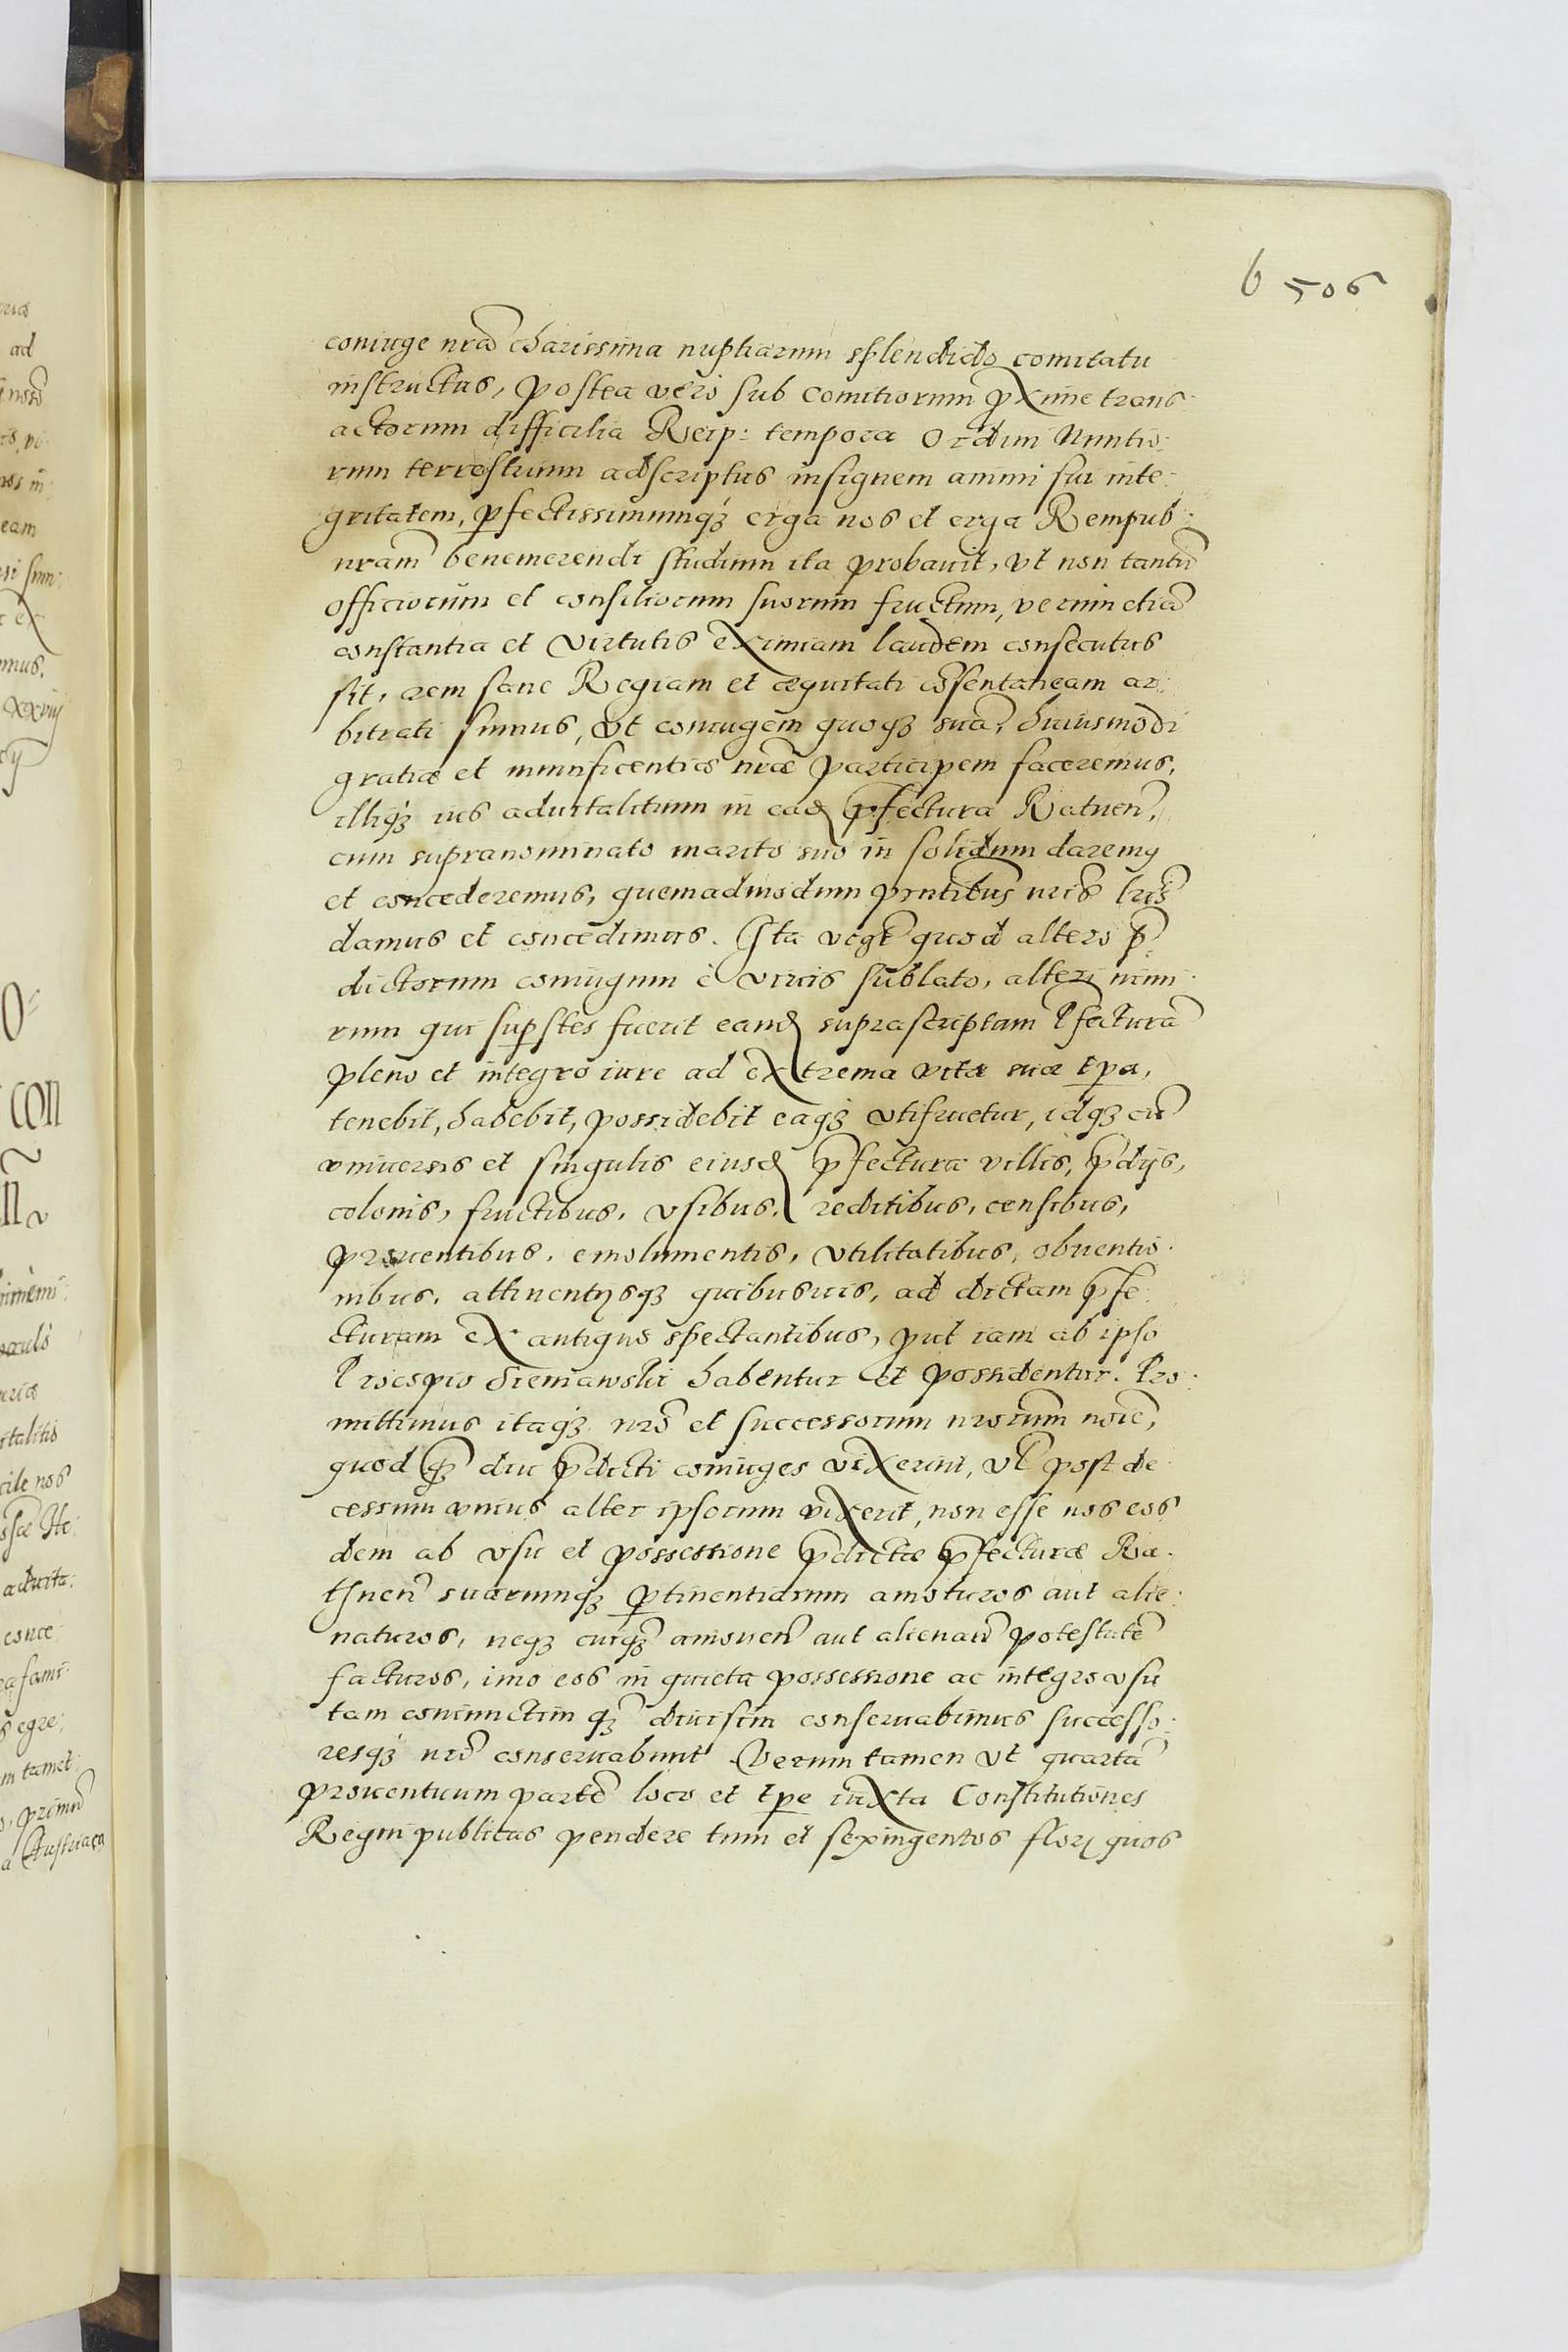 6 506
coniuge nrã charissima nuptiarum splendido comitatu
instructus, postea vero sub comitiorum pxime trans-
actorum difficilia Reip: tempora Ordini Nuntio:
rum terrestrium adscriptus insignem animi sui inte:
gritatem, pfectissimumq; erga nos et erga Rempub:
nram benemerendi studium ita probauit, vt non tantũ
officiorum et consiliorum suorum fructum, verum etiã
constantia et virtutis eximiam laudem consecutus
sit, rem sane Regiam et æquitati cõsentaneam ar:
bitrati sumus, vt coniugem quoq; suã, huiusmodi
gratiæ et munificentiæ nræ participem faceremus,
illiq; ius aduitalitium in ead pfectura Ratnen,
cum supranominato marito suo in solidum daremq
et concederemus, quemadmodum pntibus nris lris
damus et concedimus. Ita vt quod altero p-
dictorum coniugum è viuis sublato, alteri nimi-
rum qui supstes fuerit eand suprascriptam Pfecturã
pleno et integro iure ad extrema vitæ suæ tpa,
tenebit, habebit, possidebit eaq; vtifruetur, idq; cũ
vniuersis et singulis eiusd pfecturæ villis, pdijs,
colonis, fructibus, vsibus, reditibus, censibus,
prouentibus, emolumentis, vtilitatibus, obuentio-
nibus, attinentijsq; quibusuis, ad dictam pfe-
cturam ex antiquo spectantibus, put iam ab ipso
Procopio Sieniawski habentur et possidentur. Pro:
mittimus itaq; nrõ et successorum nrorum noie,
quod q; diu pdicti coniuges vixerint, vl post de-
cessum vnius alter ipsorum vixerit, non esse nos eos
dem ab vsu et possessione pdictæ pfecturæ Ra-
thnen suarumq; ptinentiarum amoturos aut alie:
naturos, neq; cuiq; amouen aut alienan potestatẽ
facturos, imo eos in quieta possessione ac integro vsu
tam coniunctim q; diuisim conseruabimus successo:
resq; nri conseruabunt. Verum tamen vt quartã
prouentuum partẽ loco et tpe iuxta Constitutiones
Regni publicas pendere tum et sexingentos flor quos